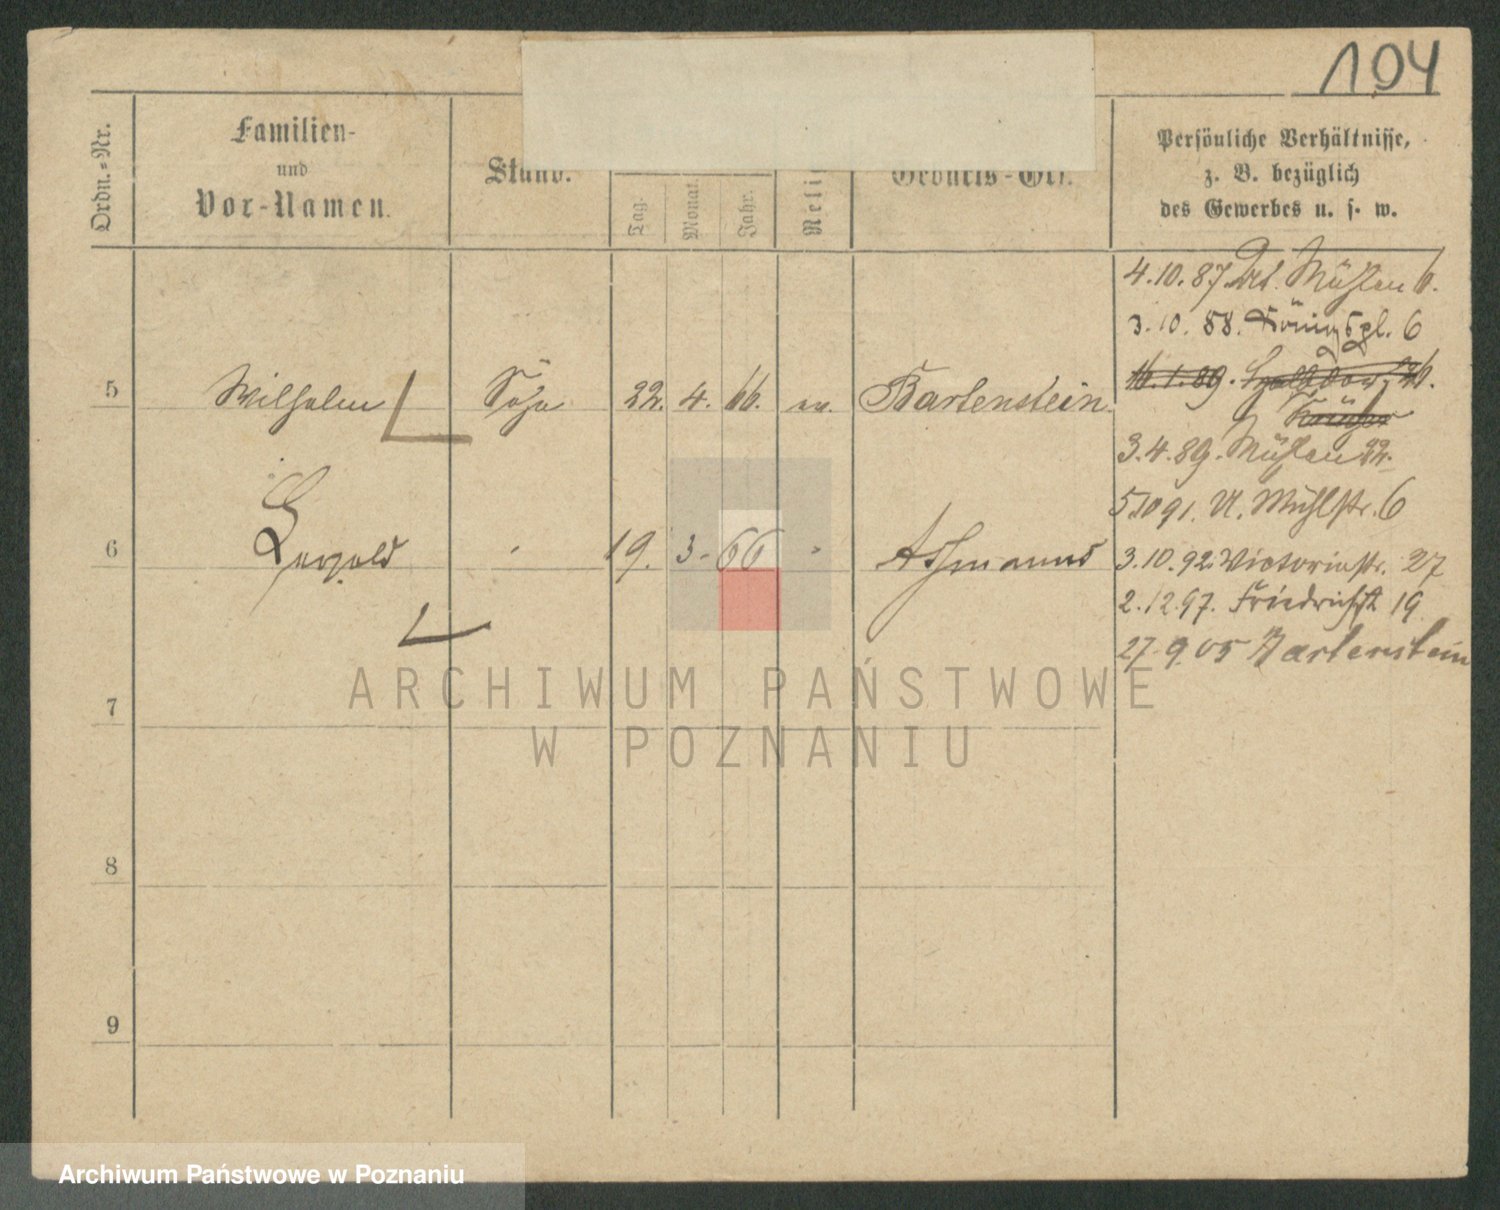 194
Ordn.-Nr.
Familien-
und
Vor-Namen.
Stand.
Tag.
Monat.
Jahr.
Relig
Geburts-Ort.
Persönliche Verhältnisse,
z. B. bezüglich
des Gewerbes u. s. w.
4.10.87. Mühlen 6.
3.10.88. Königspl. 6
16.1.89.
5 Wilhelm Sohn 22. 4. 66. ev. Bartenstein
3.4.89. Mühlen 22.
5 10 91. U. Mühlstr. 6
6 Leopold " 19. 3. 66 "
3.10.92. Victoriastr. 27
2.12.97. Friedrichst 19
27.9.05 Bartenstein
7
8
9
ARCHIWUM PAŃSTWOWE
W POZNANIU
Archiwum Państwowe w Poznaniu